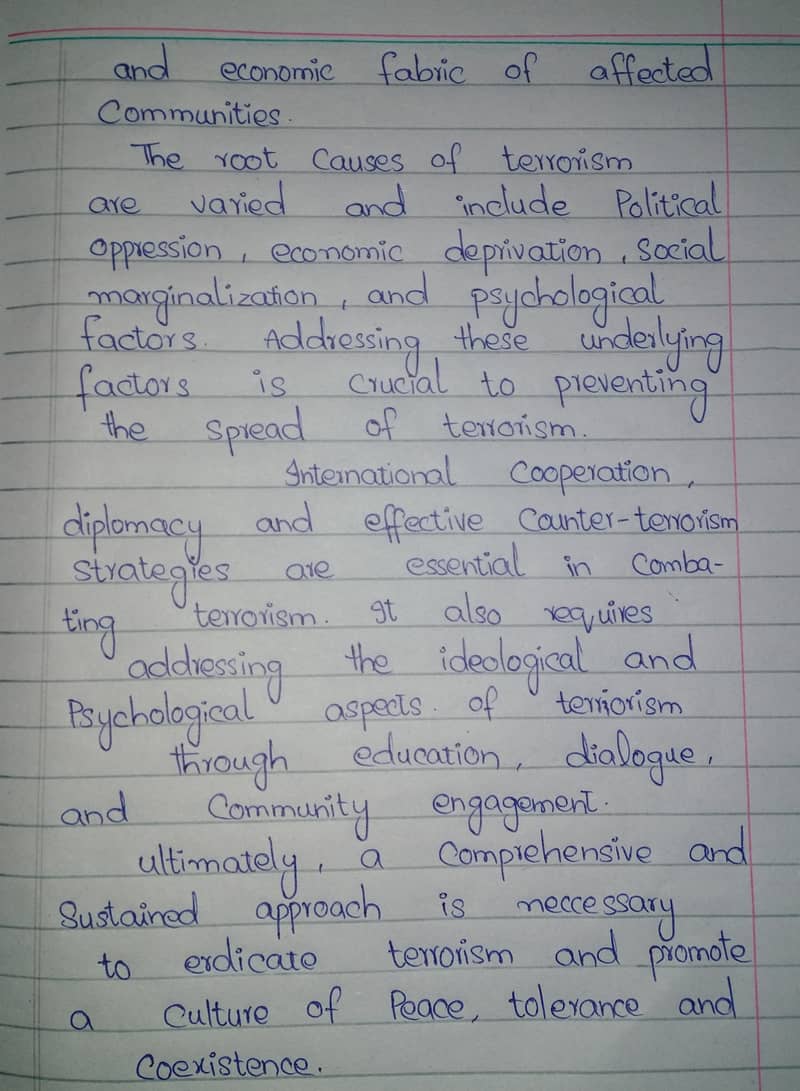 and economic fabric of affected
Communities.
The root Causes of terrorism
are varied and include Political
oppression, economic deprivation, Social
marginalization, and psychological
factors. Addressing these underlying
factors is Crucial to preventing
the Spread of terrorism.
International Cooperation,
diplomacy and effective Counter-terrorism
Strategies are essential in Comba-
ting terrorism. It also requires
addressing the ideological and
Psychological aspects. of terriorism
through education, dialogue,
and Community engagement.
ultimately, a Comprehensive and
Sustained approach is neccessary
to erdicate terrorism and promote
a Culture of Peace, tolerance and
Coexistence.